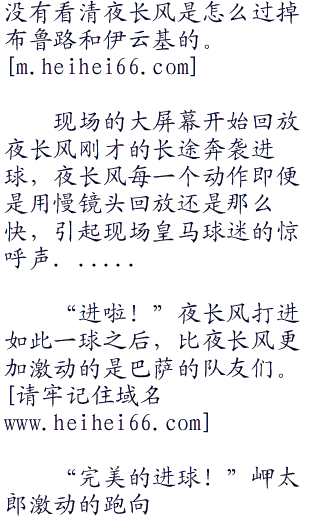 没有看清夜长风是怎么过掉
布鲁路和伊云基的。
[m.heihei66.com]
现场的大屏幕开始回放
夜长风刚才的长途奔袭进
球，夜长风每一个动作即便
是用慢镜头回放还是那么
快，引起现场皇马球迷的惊
呼声．．．．．．
“进啦！”夜长风打进
如此一球之后，比夜长风更
加激动的是巴萨的队友们。
[请牢记住域名
www.heihei66.com]
“完美的进球！”岬太
郎激动的跑向